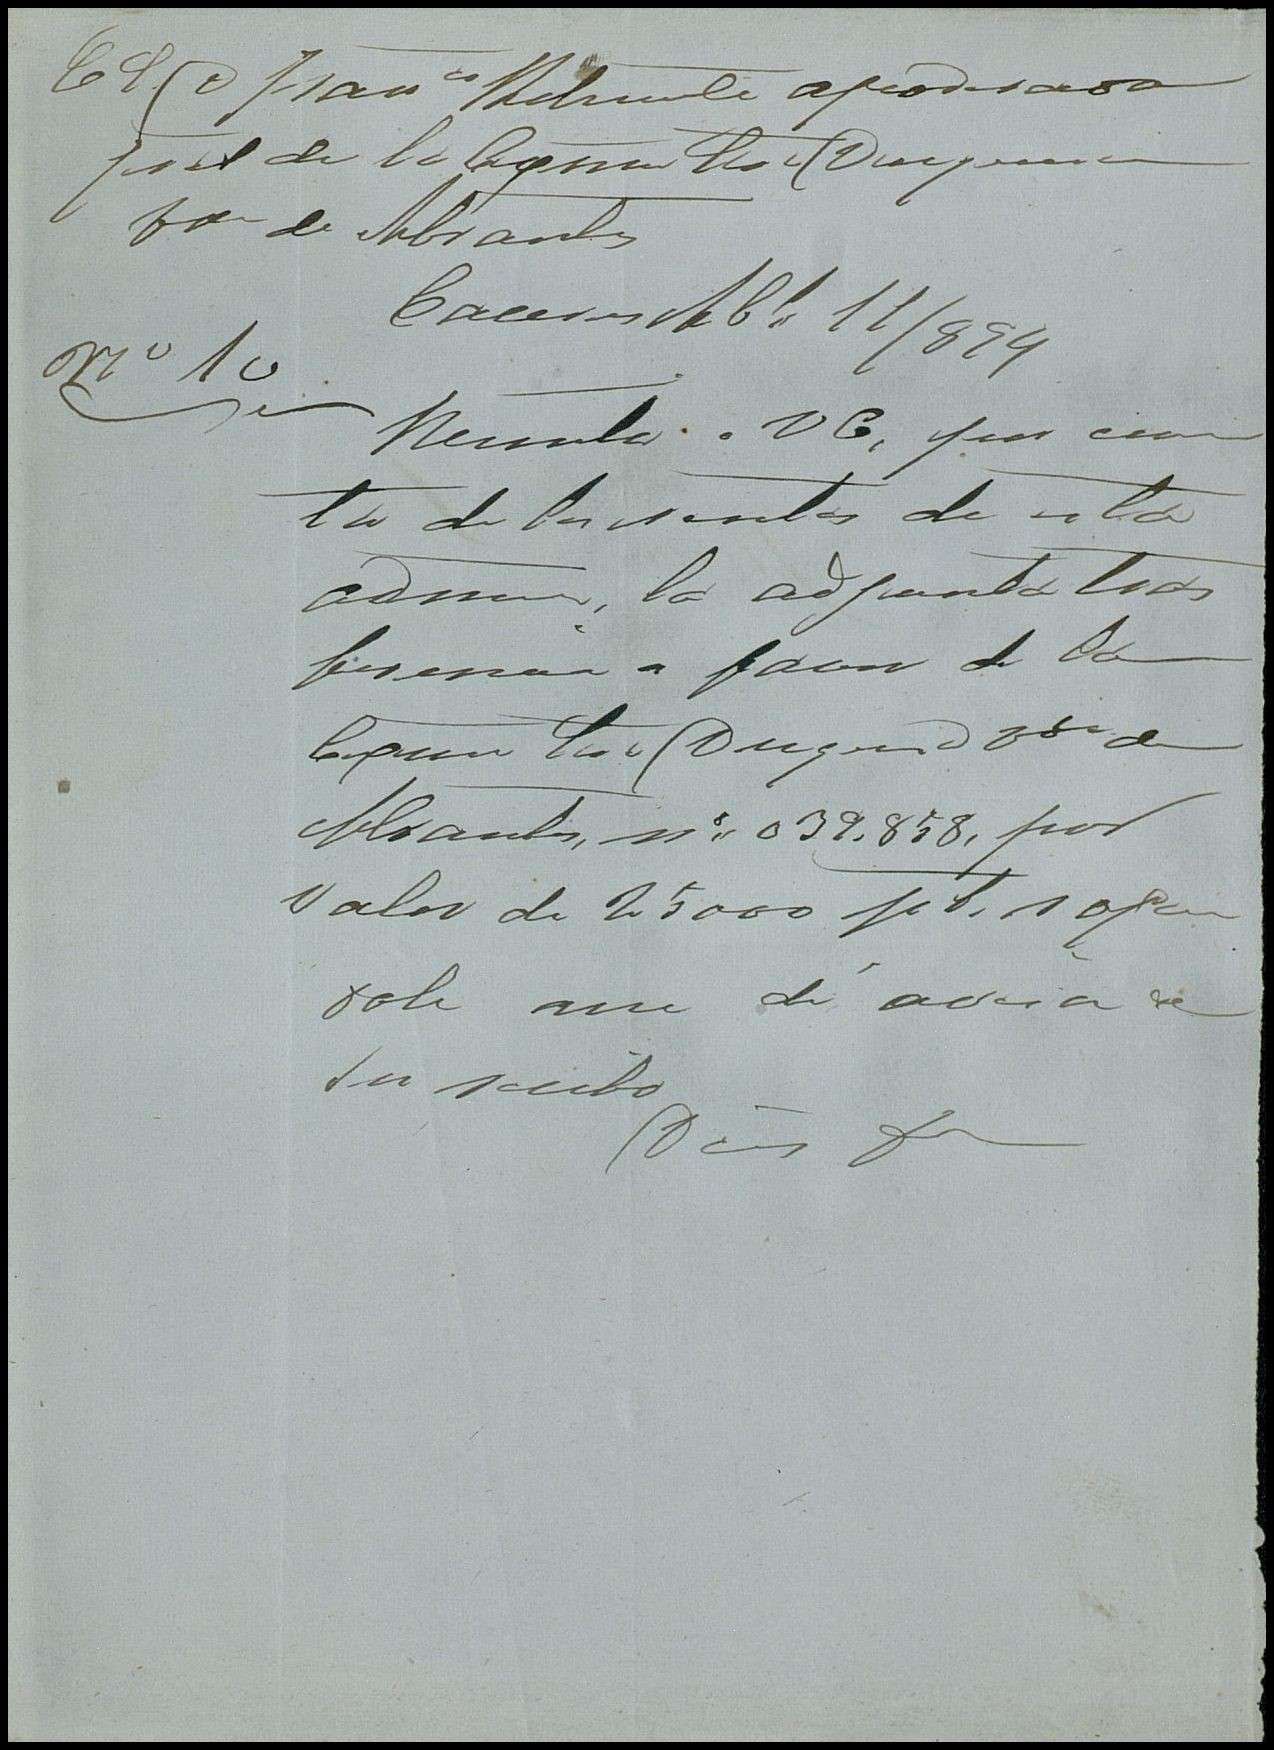 Franco apoderado
gral de la Exma Sra Duquesa
vda de Abrantes
Caceres Abl 11/894
No 10
Remito a VE, por cuen
ta de las rentas de esta
admon, la adjunta tras
ferencia a favor de la
Exma Sra Duquesa vda de
Abrantes, no 039.858, por
valor de 25000 pts, rogan
dole me dé aviso de
su recibo
Dios